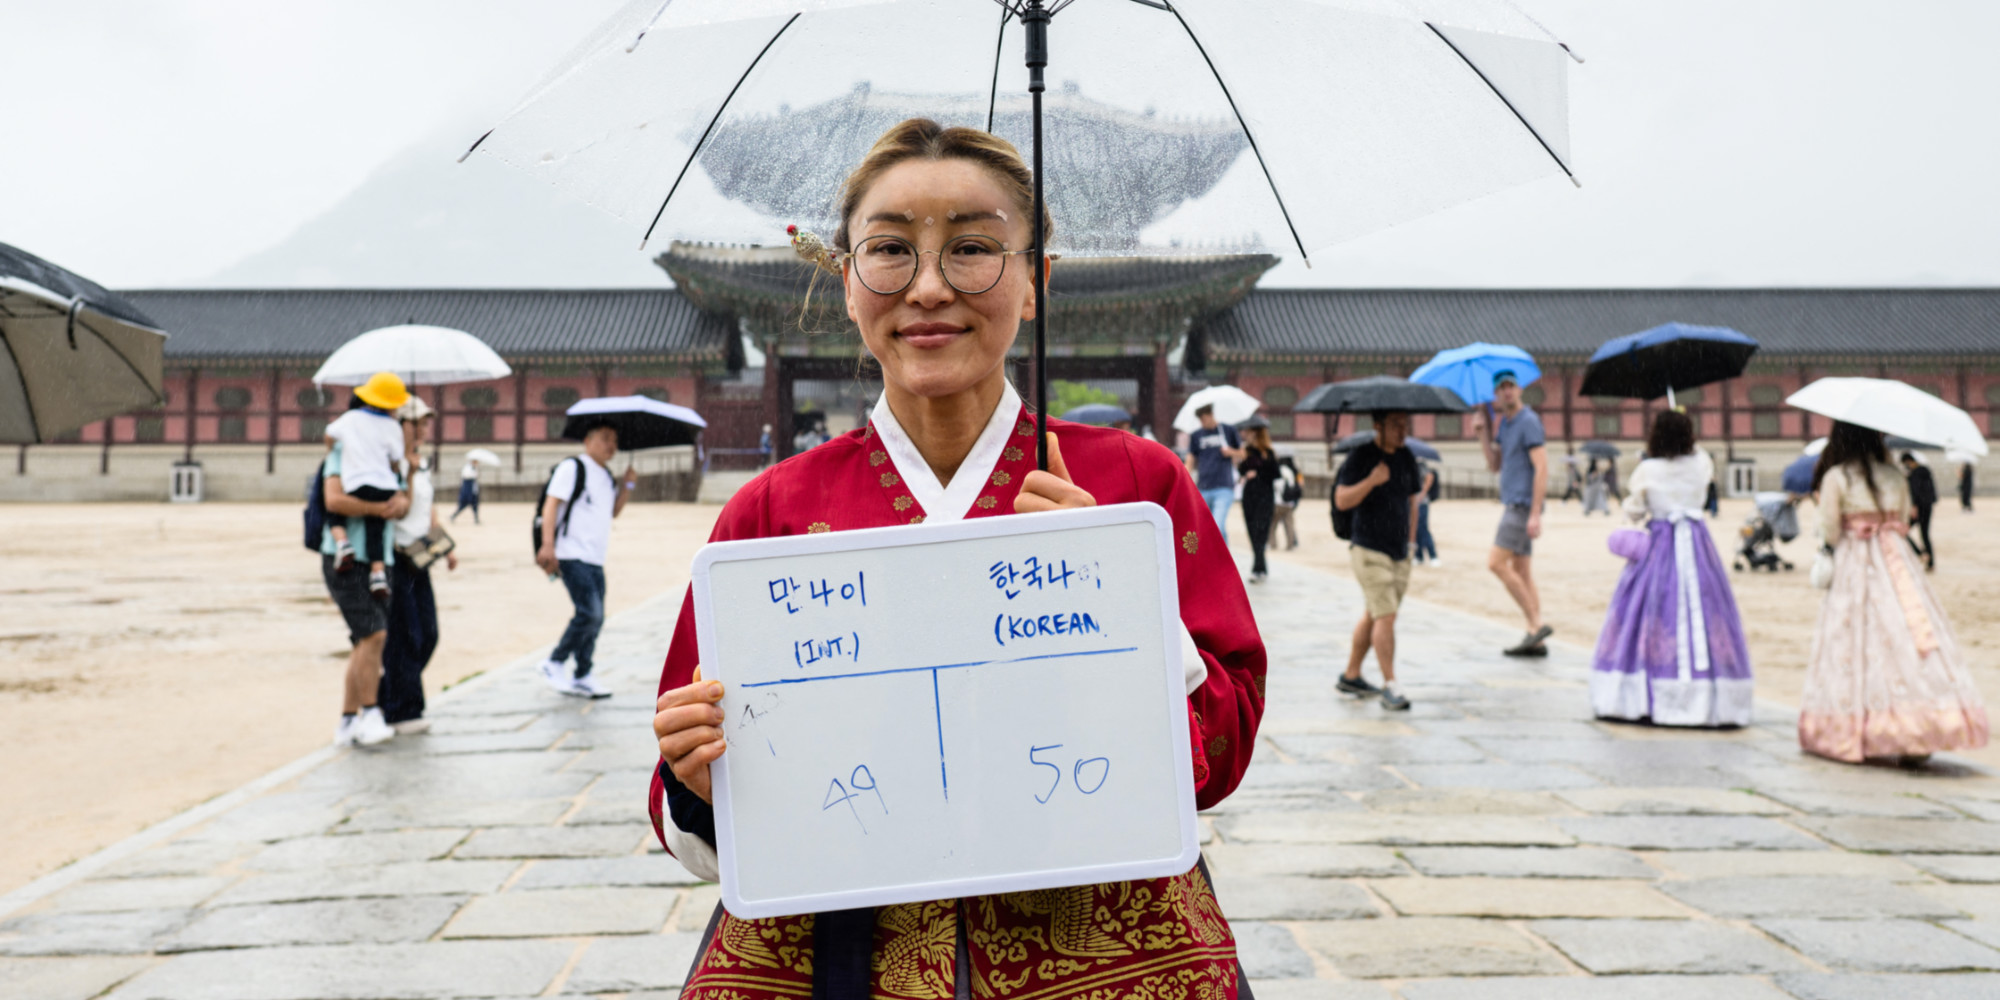 만나이
한국나이
(INT.)
(KOREAN
49
50